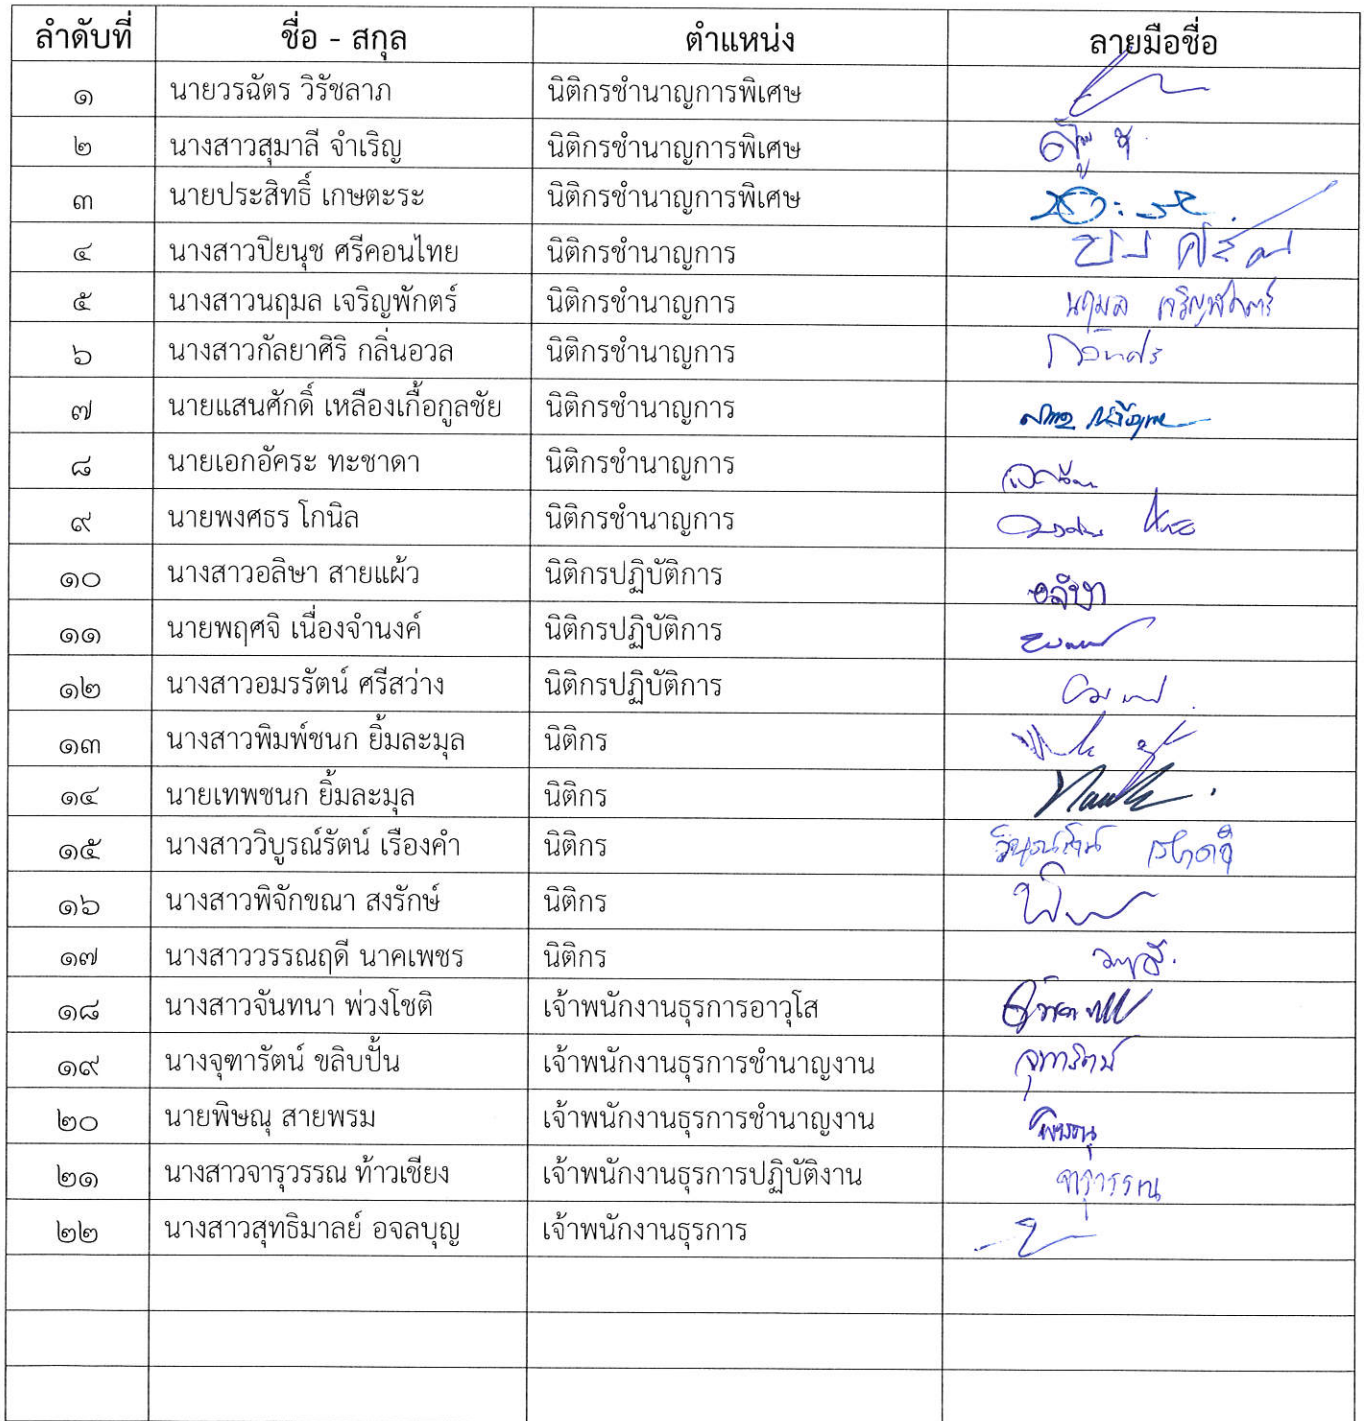 ลำดับที่ ชื่อ - สกุล ตำแหน่ง ลายมือชื่อ
๑ นายวรฉัตร วิรัชลาภ นิติกรชำนาญการพิเศษ
๒ นางสาวสุมาลี จำเริญ นิติกรชำนาญการพิเศษ
๓ นายประสิทธิ์ เกษตะระ นิติกรชำนาญการพิเศษ
๔ นางสาวปิยนุช ศรีคอนไทย นิติกรชำนาญการ
๕ นางสาวนฤมล เจริญพักตร์ นิติกรชำนาญการ นฤมล เจริญพักตร์
๖ นางสาวกัลยาศิริ กลิ่นอวล นิติกรชำนาญการ
๗ นายแสนศักดิ์ เหลืองเกื้อกูลชัย นิติกรชำนาญการ
๘ นายเอกอัคระ ทะชาดา นิติกรชำนาญการ
๙ นายพงศธร โกนิล นิติกรชำนาญการ
๑๐ นางสาวอลิษา สายแผ้ว นิติกรปฏิบัติการ อลิษา
๑๑ นายพฤศจิ เนื่องจำนงค์ นิติกรปฏิบัติการ
๑๒ นางสาวอมรรัตน์ ศรีสว่าง นิติกรปฏิบัติการ
๑๓ นางสาวพิมพ์ชนก ยิ้มละมุล นิติกร
๑๔ นายเทพชนก ยิ้มละมุล นิติกร
๑๕ นางสาววิบูรณ์รัตน์ เรืองคำ นิติกร
๑๖ นางสาวพิจักขณา สงรักษ์ นิติกร
๑๗ นางสาววรรณฤดี นาคเพชร นิติกร
๑๘ นางสาวจันทนา พ่วงโชติ เจ้าพนักงานธุรการอาวุโส
๑๙ นางจุฑารัตน์ ขลิบปั้น เจ้าพนักงานธุรการชำนาญงาน จุฑารัตน์
๒๐ นายพิษณุ สายพรม เจ้าพนักงานธุรการชำนาญงาน พิษณุ
๒๑ นางสาวจารุวรรณ ท้าวเชียง เจ้าพนักงานธุรการปฏิบัติงาน จารุวรรณ
๒๒ นางสาวสุทธิมาลย์ อจลบุญ เจ้าพนักงานธุรการ